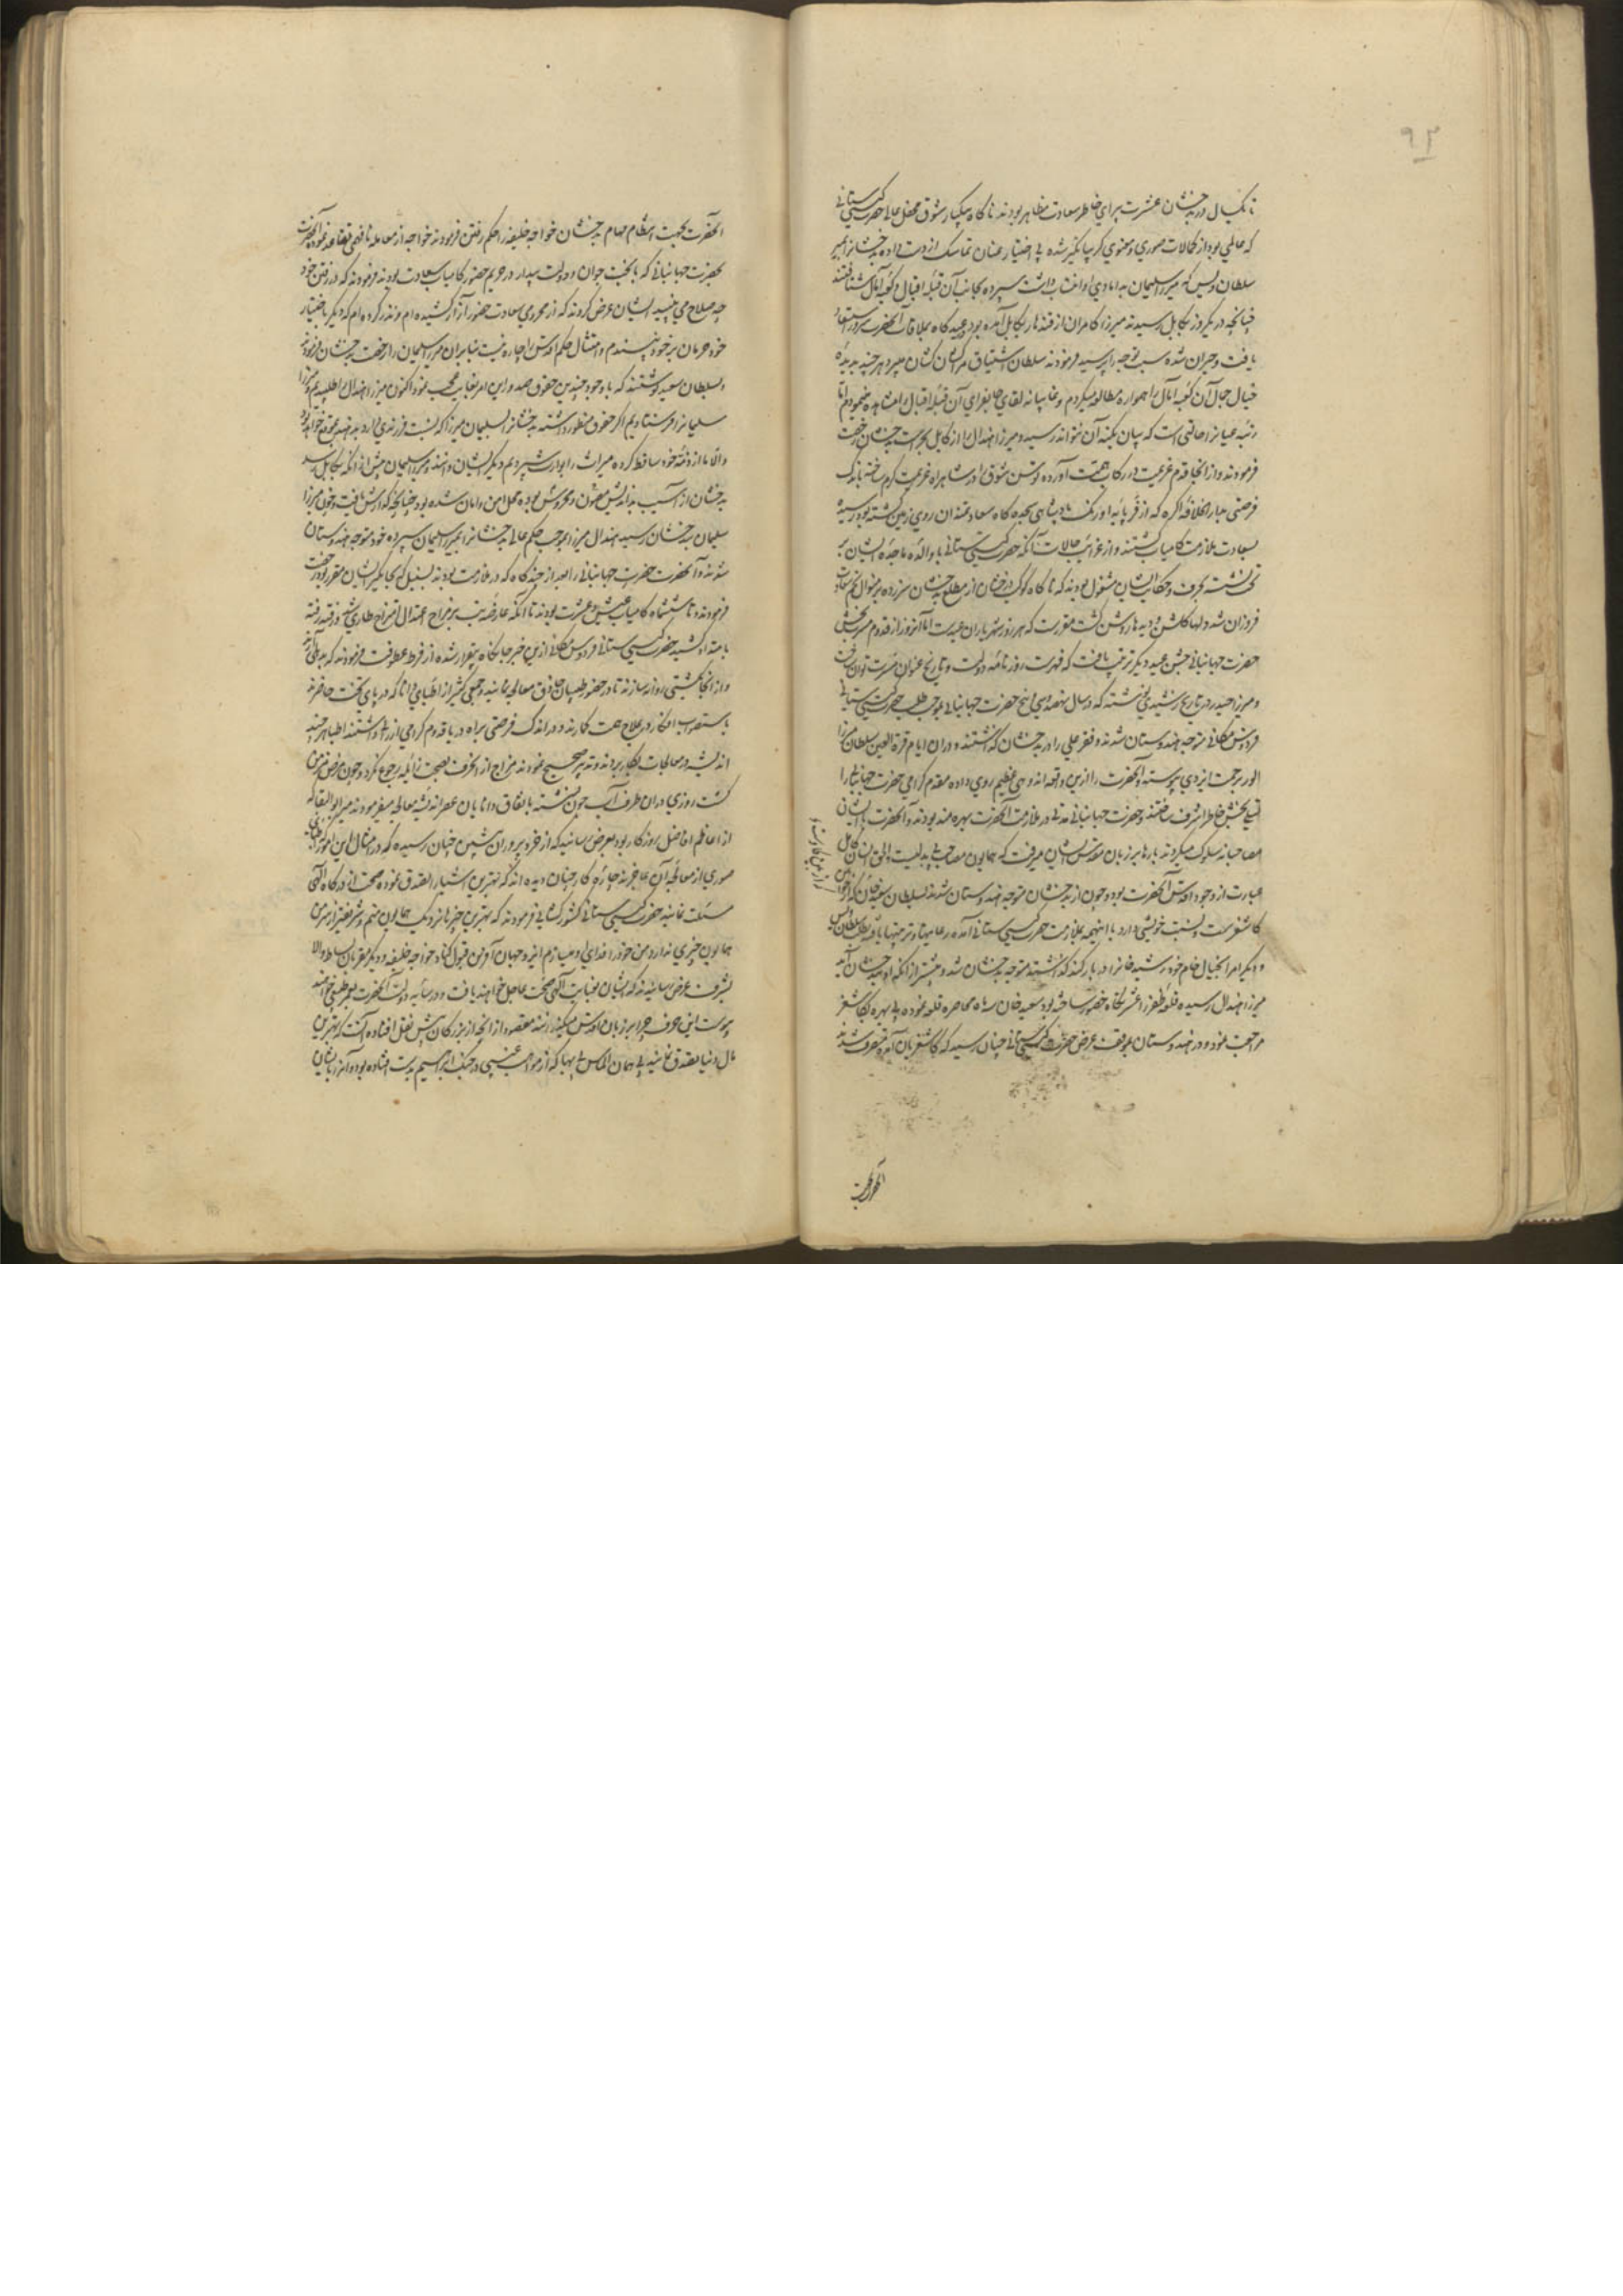 ۹۲
تا یکسال در بدخشان عشرت پیرای خاطر سعادت مظاهر بودند ناگاه یکبار شوق محفل عالی حضرت گیتی ستانی
که عالمی بود از کمالات صوری و معنوی گریبانگیر شده بی اختیار عنان تماسک از دست داده بدخشانرا بمیر
سلطان ویس که میرزا سلیمان بدامادی او انتساب داشت سپرده بجانب آن قبله اقبال و کعبه آمال شتافتند
چنانچه در یکروز بکابل رسیدند میرزا کامران از قندهار بکابل آمده بود در عیدگاه بملاقات آنحضرت سرور استسعاد
یافت و حیران شده سبب توجه را پرسید فرمودند سلطان اشتیاق مرا کشان کشان میبرد هر چند بدیده
خیال جمال آن کعبه آمال را همواره مطالعه میکردم و غایبانه لقای جانفزای آن قبله اقبال را مشاهده مینمودم اما
رتبه عیانرا حالتی است که بیان بکنه آن نتواند رسید و میرزا هندال را از کابل بحراست بدخشان رخصت
فرمودند و از آنجا قدم عزیمت در رکاب همت آورده توسن شوق را در شاهراه عزیمت گرم ساخته باندک
فرصتی بدار الخلافه آگره که از فر پایه اورنگ پادشاهی سجده گاه سعادتمندان روی زمین گشته بود رسیده
بسعادت ملازمت کامیاب گشتند و از غرائب حالات آنکه حضرت گیتی ستانی با والده ماجده ایشان بر
تخت نشسته بحرف و حکایت ایشان مشغول بودند که ناگاه کوکب درخشان از مطلع بدخشان سر زده بر منوال نجم سعادت
فروزان شد و لها گلشن و دیدها روشن گشت مقررست که هر روز شهریاران عیدست اما آنروز از قدوم مسرت بخش
حضرت جهانبانی جشن عید دیگر ترتیب یافت که فهرست روزنامه دولت و تاریخ عنوان مسرت توان گفت
و میرزا حیدر در تاریخ رشیدی نوشته که در سال نهصد و سی و پنج حضرت جهانبانی بموجب طلب حضرت گیتی ستانی
فردوس مکانی متوجه هندوستان شدند و فقیر علی را در بدخشان گذاشتند و دران ایام قرة العین سلطان میرزا
الور برحمت ایزدی پیوسته و آنحضرت را ازین واقعه اندوهی عظیم روی داده مقدم گرامی حضرت جهانبانی را
تسلی بخش خاطر اشرف ساختند و حضرت جهانبانی مدتی در ملازمت آنحضرت بهره مند بودند و آنحضرت با ایشان
مصاحبانه سلوک میکردند بارها بر زبان مقدس ایشان میرفت که همایون مصاحب بی بدلیست والحق انسان کامل
عبارت از وجود اقدس آنحضرت بود و چون از بدخشان متوجه هندوستان شدند سلطان سعید خان که از خوانین
کاشغرست و نسبت خویشی دارد با اینهمه بملازمت حضرت گیتی ستانی آمده رعایتها و تربیتها یافته بطلب سلطان ویس
و دیگر امرا بخیال خام خود رشید خانرا در یارکند گذاشته متوجه بدخشان شد و پیشتر از آنکه او ببدخشان آید
میرزا هندال رسیده قلعه ظفر را عشرتگاه حضور ساخته بود سعید خان سه ماه محاصره قلعه نموده بی بهره بکاشغر
مراجعت نمود و در هندوستان بموقف عرض حضرت گیتی ستانی چنان رسید که کاشغریان آمده متصرف شدند
آنحضرت بجهت
آنحضرت بجهت انتظام مهام بدخشان خواجه خلیفه را حکم رفتن فرمودند خواجه از معامله نافهمی تقاعد نمود آنحضرت
بحضرت جهانبانی که با بخت جوان و دولت بیدار در حریم حضور کامیاب سعادت بودند فرمودند که در رفتن خود
چه صلاح می بینید ایشان عرض کردند که از محرومی سعادت حضور آزار کشیده ام و نذر کرده ام که دیگر باختیار
خود حرمان بر خود نپسندم و امتثال حکم اقدس را چاره نیست بنا بران میرزا سلیمان را رخصت بدخشان فرمودند
و بسلطان سعید نوشتند که با وجود چندین حقوق صدور این امر بغایت عجیب نمود اکنون میرزا هندال را طلبیدیم و میرزا
سلیمانرا فرستادیم اگر حقوق منظور داشته بدخشانرا بسلیمان میرزا که نسبت فرزندی دارد بدهید بموقع خواهد بود
و الا ما از ذمه خود ساقط کرده میراث را بوارث سپردیم دیگر ایشان دانند و میرزا سلیمان پیش از آنکه بکابل رسد
بدخشان از آسیب بداندیش مصون و محروس بوده محل امن و امان شده بود چنانچه گذارش یافت و چون میرزا
سلیمان ببدخشان رسید هندال میرزا بموجب حکم عالی بدخشانرا بمیرزا سلیمان سپرده خود متوجه هندوستان
شدند و آنحضرت حضرت جهانبانی را بعد از چندگاه که در ملازمت بودند بسنبل که بجاگیر ایشان مقرر بود رخصت
فرمودند و تا ششماه کامیاب عیش و عشرت بودند تا آنکه عارضه تب بر مزاج اعتدال امتزاج طاری شد و رفته رفته
بامتداد کشید حضرت گیتی ستانی فردوس مکانی ازین خبر جانکاه بیقرار شده از فرط عطوفت فرمودند که بدهلی آرند
و از آنجا بکشتی روانه سازند تا در حضور طبیبان حاذق معالجه نمایند و جمعی کثیر از اطبای دانا که در پای تخت حاضرند
باستصواب افکار در علاج همت گمارند و در اندک فرصتی براه دریا قدوم گرامی ارزانی داشتند اطبا هر چند
اندیشه در معالجات بکار بردند و تدبیر صحیح نمودند مزاج از انحراف بصحت زائله رجوع نکرد و چون مرض مزمن
گشت روزی دران طرف آب جون نشسته باتفاق دانایان عصر اندیشه معالجه میفرمودند میر ابو البقا که
از اعاظم افاضل روزگار بود بعرض رسانید که از خردپروران پیشین چنان رسیده که در امثال این امور که طبای
صوری از معالجه آن عاجزند چاره کار چنان دیده اند که بهترین اشیا را تصدق نموده صحت از درگاه الهی
مسئلت نمایند حضرت گیتی ستانی کشورگشایی فرمودند که بهترین چیزها نزدیک همایون منم و شریفتر از من
همایون چیزی ندارد من خود را فدای او میسازم ایزد جهان آفرین قبول کناد خواجه خلیفه و دیگر مقربان بساط والا
بشرف عرض رسانیدند که ایشان بعنایت الهی صحت عاجل خواهند یافت و در سایه دولت آنحضرت بعمر طبیعی خواهند
پیوست این حرف چرا بر زبان اقدس میگذرانند مقصود از آنچه از بزرگان پیش نقل افتاده آنست که بهترین
مال دنیا تصدق نمایند پس همان الماس بی بها که از مواهب غیبی در جنگ ابراهیم بدست افتاده بود و آنرا بایشان